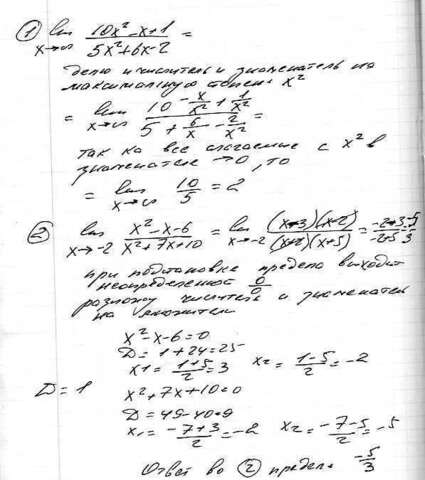 ① lim 10x² - x + 1 / 5x² + 6x - 2 =
x→∞
делю и числитель и знаменатель на
максимальную степень x²
= lim 10 - x/x² + 1/x² / 5 + 6/x - 2/x² =
x→∞
так ка все слагаемие с x² в
знаменателе →0, то
= lim 10/5 = 2
x→∞
② lim x² - x - 6 / x² + 7x + 10 = lim (x-3)(x-2) / (x+2)(x+5) = -2-3 / -2+5 = -5/3
x→-2 x→-2
при подстановке предела выходит
неопределенность 0/0
разложу числитель и знаменатель
на множители
x² - x - 6 = 0
D = 1 + 24 = 25
x1 = 1+5/2 = 3 x2 = 1-5/2 = -2
D = 1 x² + 7x + 10 = 0
D = 49 - 40 = 9
x1 = -7+3/2 = -2 x2 = -7-5/2 = -5
Ответ во ② предел = -5/3